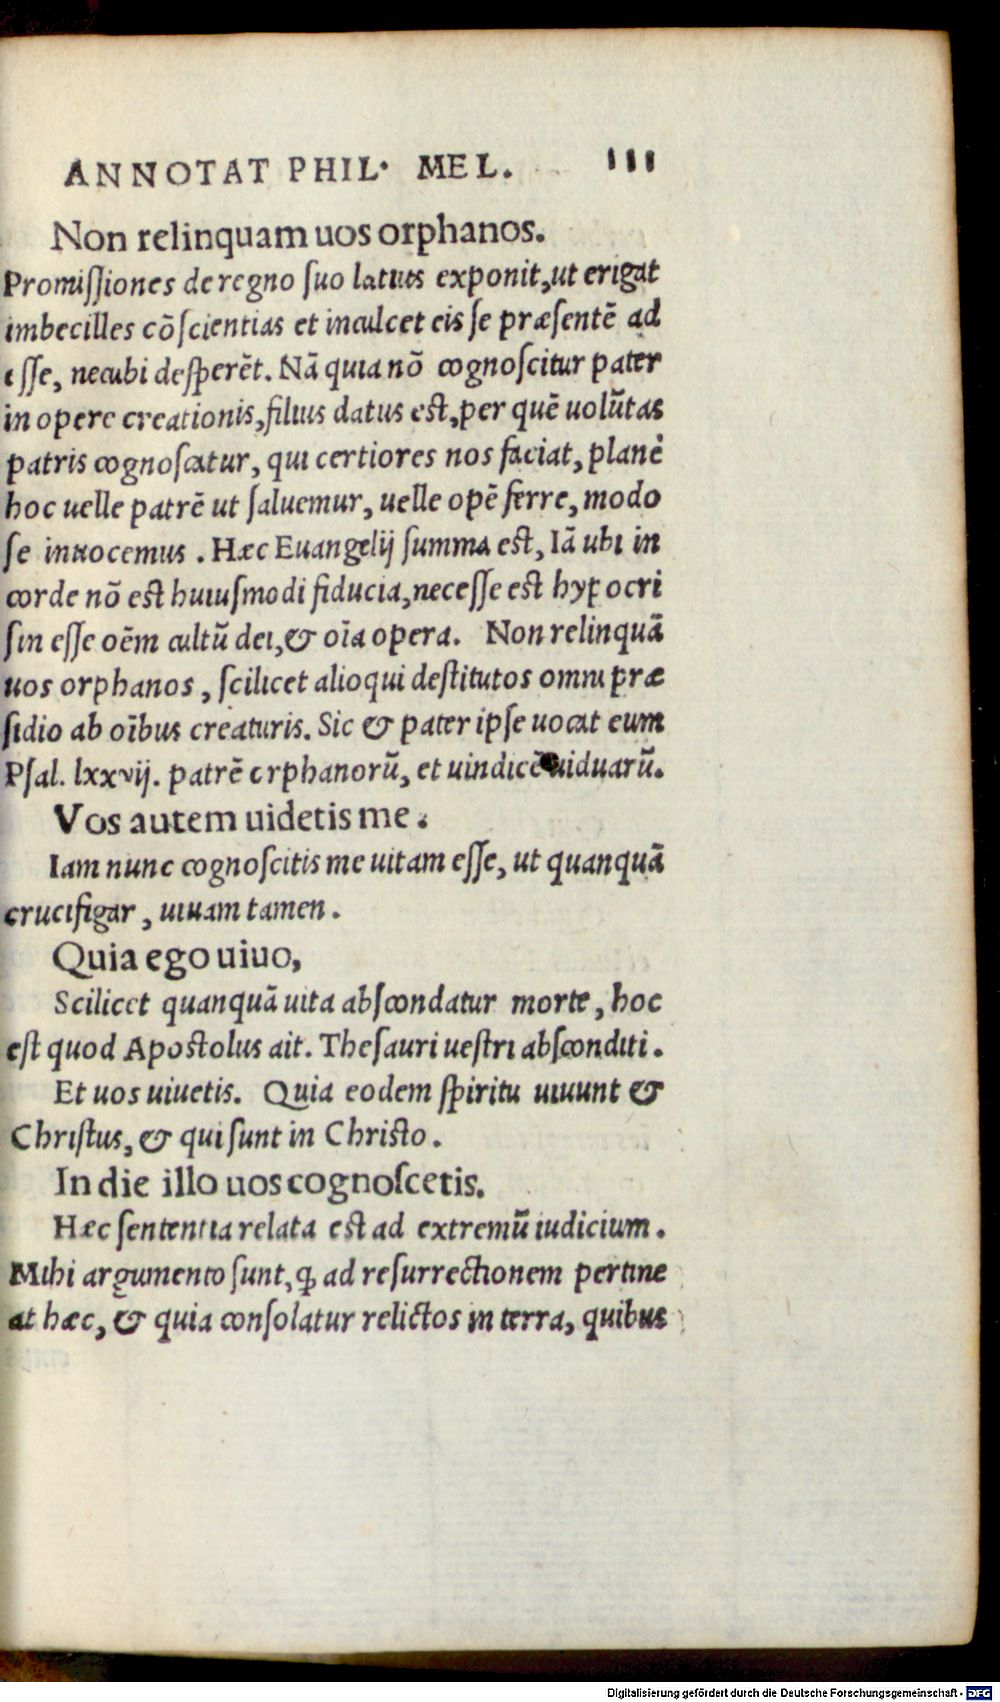 ANNOTAT PHIL· MEL. 111
Non relinquam uos orphanos.
Promiſſiones de regno ſuo latius exponit, ut erigat
imbecilles cōſcientias et inculcet eis ſe præſentē ad
eſſe, necubi deſperēt. Nā quia nō cognoſcitur pater
in opere creationis, filius datus est, per quē uolūtas
patris cognoſcatur, qui certiores nos faciat, planè
hoc uelle patrē ut ſaluemur, uelle opē ferre, modo
ſe inuocemus. Hæc Euangelij ſumma est, Iā ubi in
corde nō est huiuſmodi fiducia, neceſſe est hypocri
ſin eſſe oēm cultū dei, & oīa opera. Non relinquā
uos orphanos, ſcilicet alioqui deſtitutos omni præ
ſidio ab oībus creaturis. Sic & pater ipſe uocat eum
Pſal. lxxvij. patrē orphanorū, et uindicē uiduarū.
Vos autem uidetis me.
Iam nunc cognoſcitis me uitam eſſe, ut quanquā
crucifigar, uiuam tamen.
Quia ego uiuo,
Scilicet quanquā uita abſcondatur morte, hoc
est quod Apostolus ait. Theſauri ueſtri abſconditi.
Et uos uiuetis. Quia eodem ſpiritu uiuunt &
Chriſtus, & qui ſunt in Christo.
In die illo uos cognoſcetis.
Hæc ſententia relata est ad extremū iudicium.
Mihi argumento ſunt, ꝙ ad reſurrectionem pertine
at hæc, & quia conſolatur relictos in terra, quibus
Digitalisierung gefördert durch die Deutsche Forschungsgemeinschaft - DFG